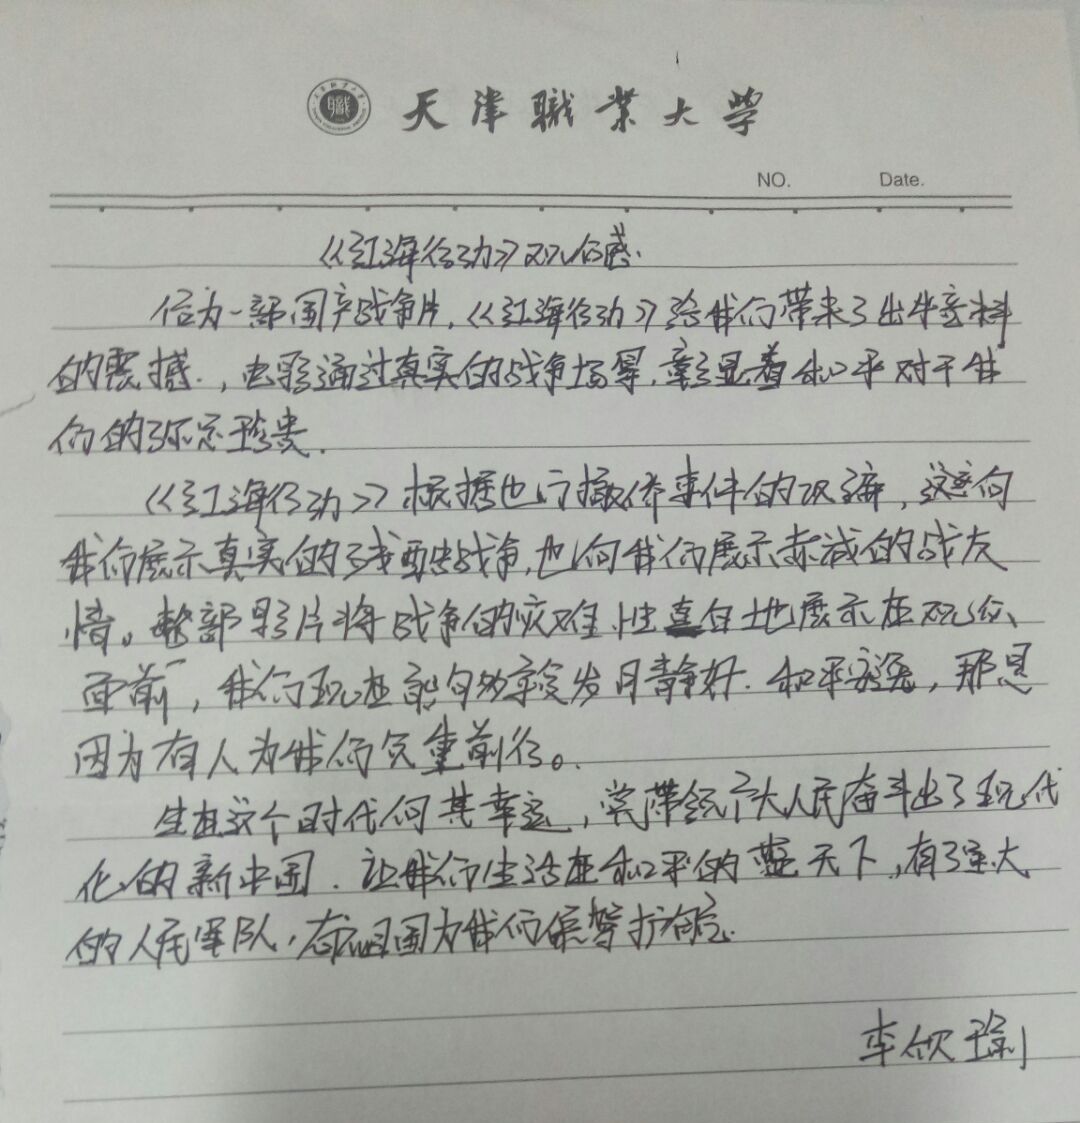 天津職業大学
NO. Date.
《红海行动》观后感.
作为一部国产战争片,《红海行动》给我们带来了出乎意料
的震撼.,电影通过真实的战争场景,彰显着和平对于我
们的弥足珍贵.
《红海行动》根据也门撤侨事件的改编,这向
我们展示真实的残酷战争,也向我们展示赤诚的战友
情。整部影片将战争的灾难性直白地展示在观众
面前,我们现在能够享受岁月静好.和平安宁,那是
因为有人为我们负重前行。
生在这个时代何其幸运,党带领广大人民奋斗出了现代
化的新中国.让我们生活在和平的蓝天下,有了强大
的人民军队,在祖国为我们保驾护航.
李欣瑜